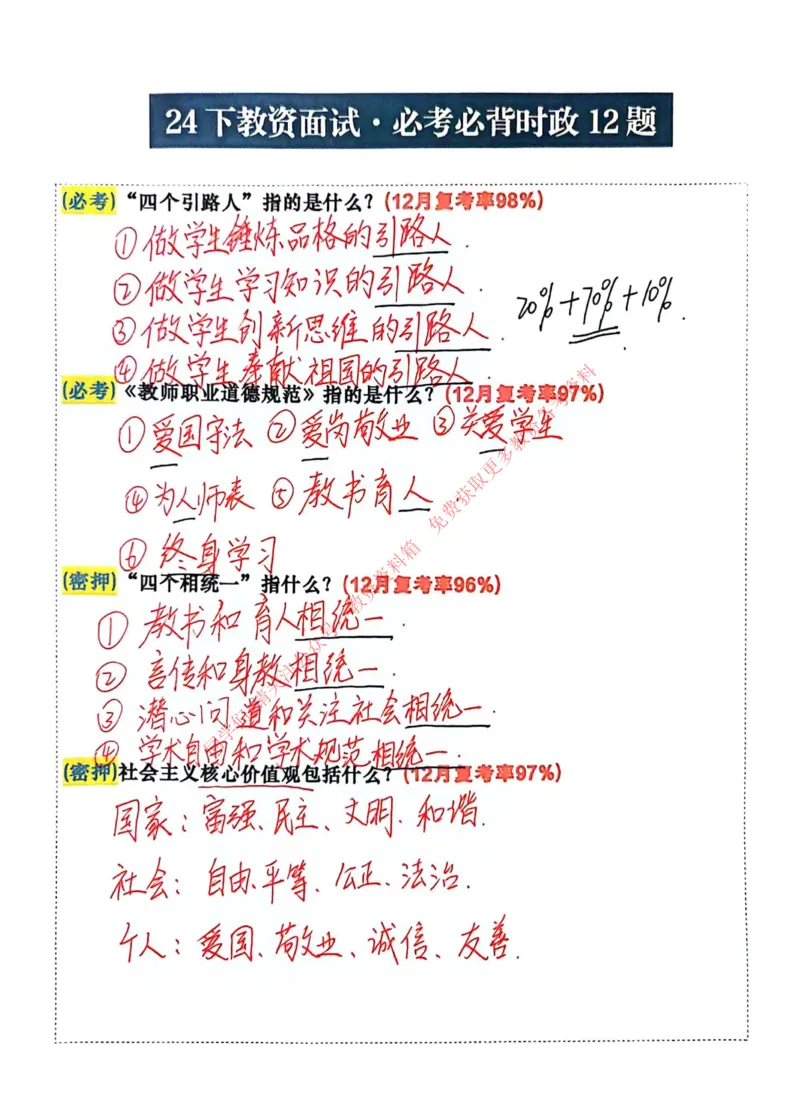 24下教资面试·必考必背时政12题
(必考)“四个引路人”指的是什么？(12月复考率98%)
①做学生锤炼品格的引路人.
②做学生学习知识的引路人.
③做学生创新思维的引路人.
20%+70%+10%.
④做学生奉献祖国的引路人.
(必考)《教师职业道德规范》指的是什么？(12月复考率97%)
①爱国守法 ②爱岗敬业 ③关爱学生
④为人师表 ⑤教书育人.
⑥终身学习
(密押)“四个相统一”指什么？(12月复考率96%)
①教书和育人相统一.
②言传和身教相统一.
③潜心问道和关注社会相统一.
④学术自由和学术规范相统一.
(密押)社会主义核心价值观包括什么？(12月复考率97%)
国家：富强、民主、文明、和谐.
社会：自由、平等、公正、法治.
个人：爱国、敬业、诚信、友善.
免费获取更多教资备考资料